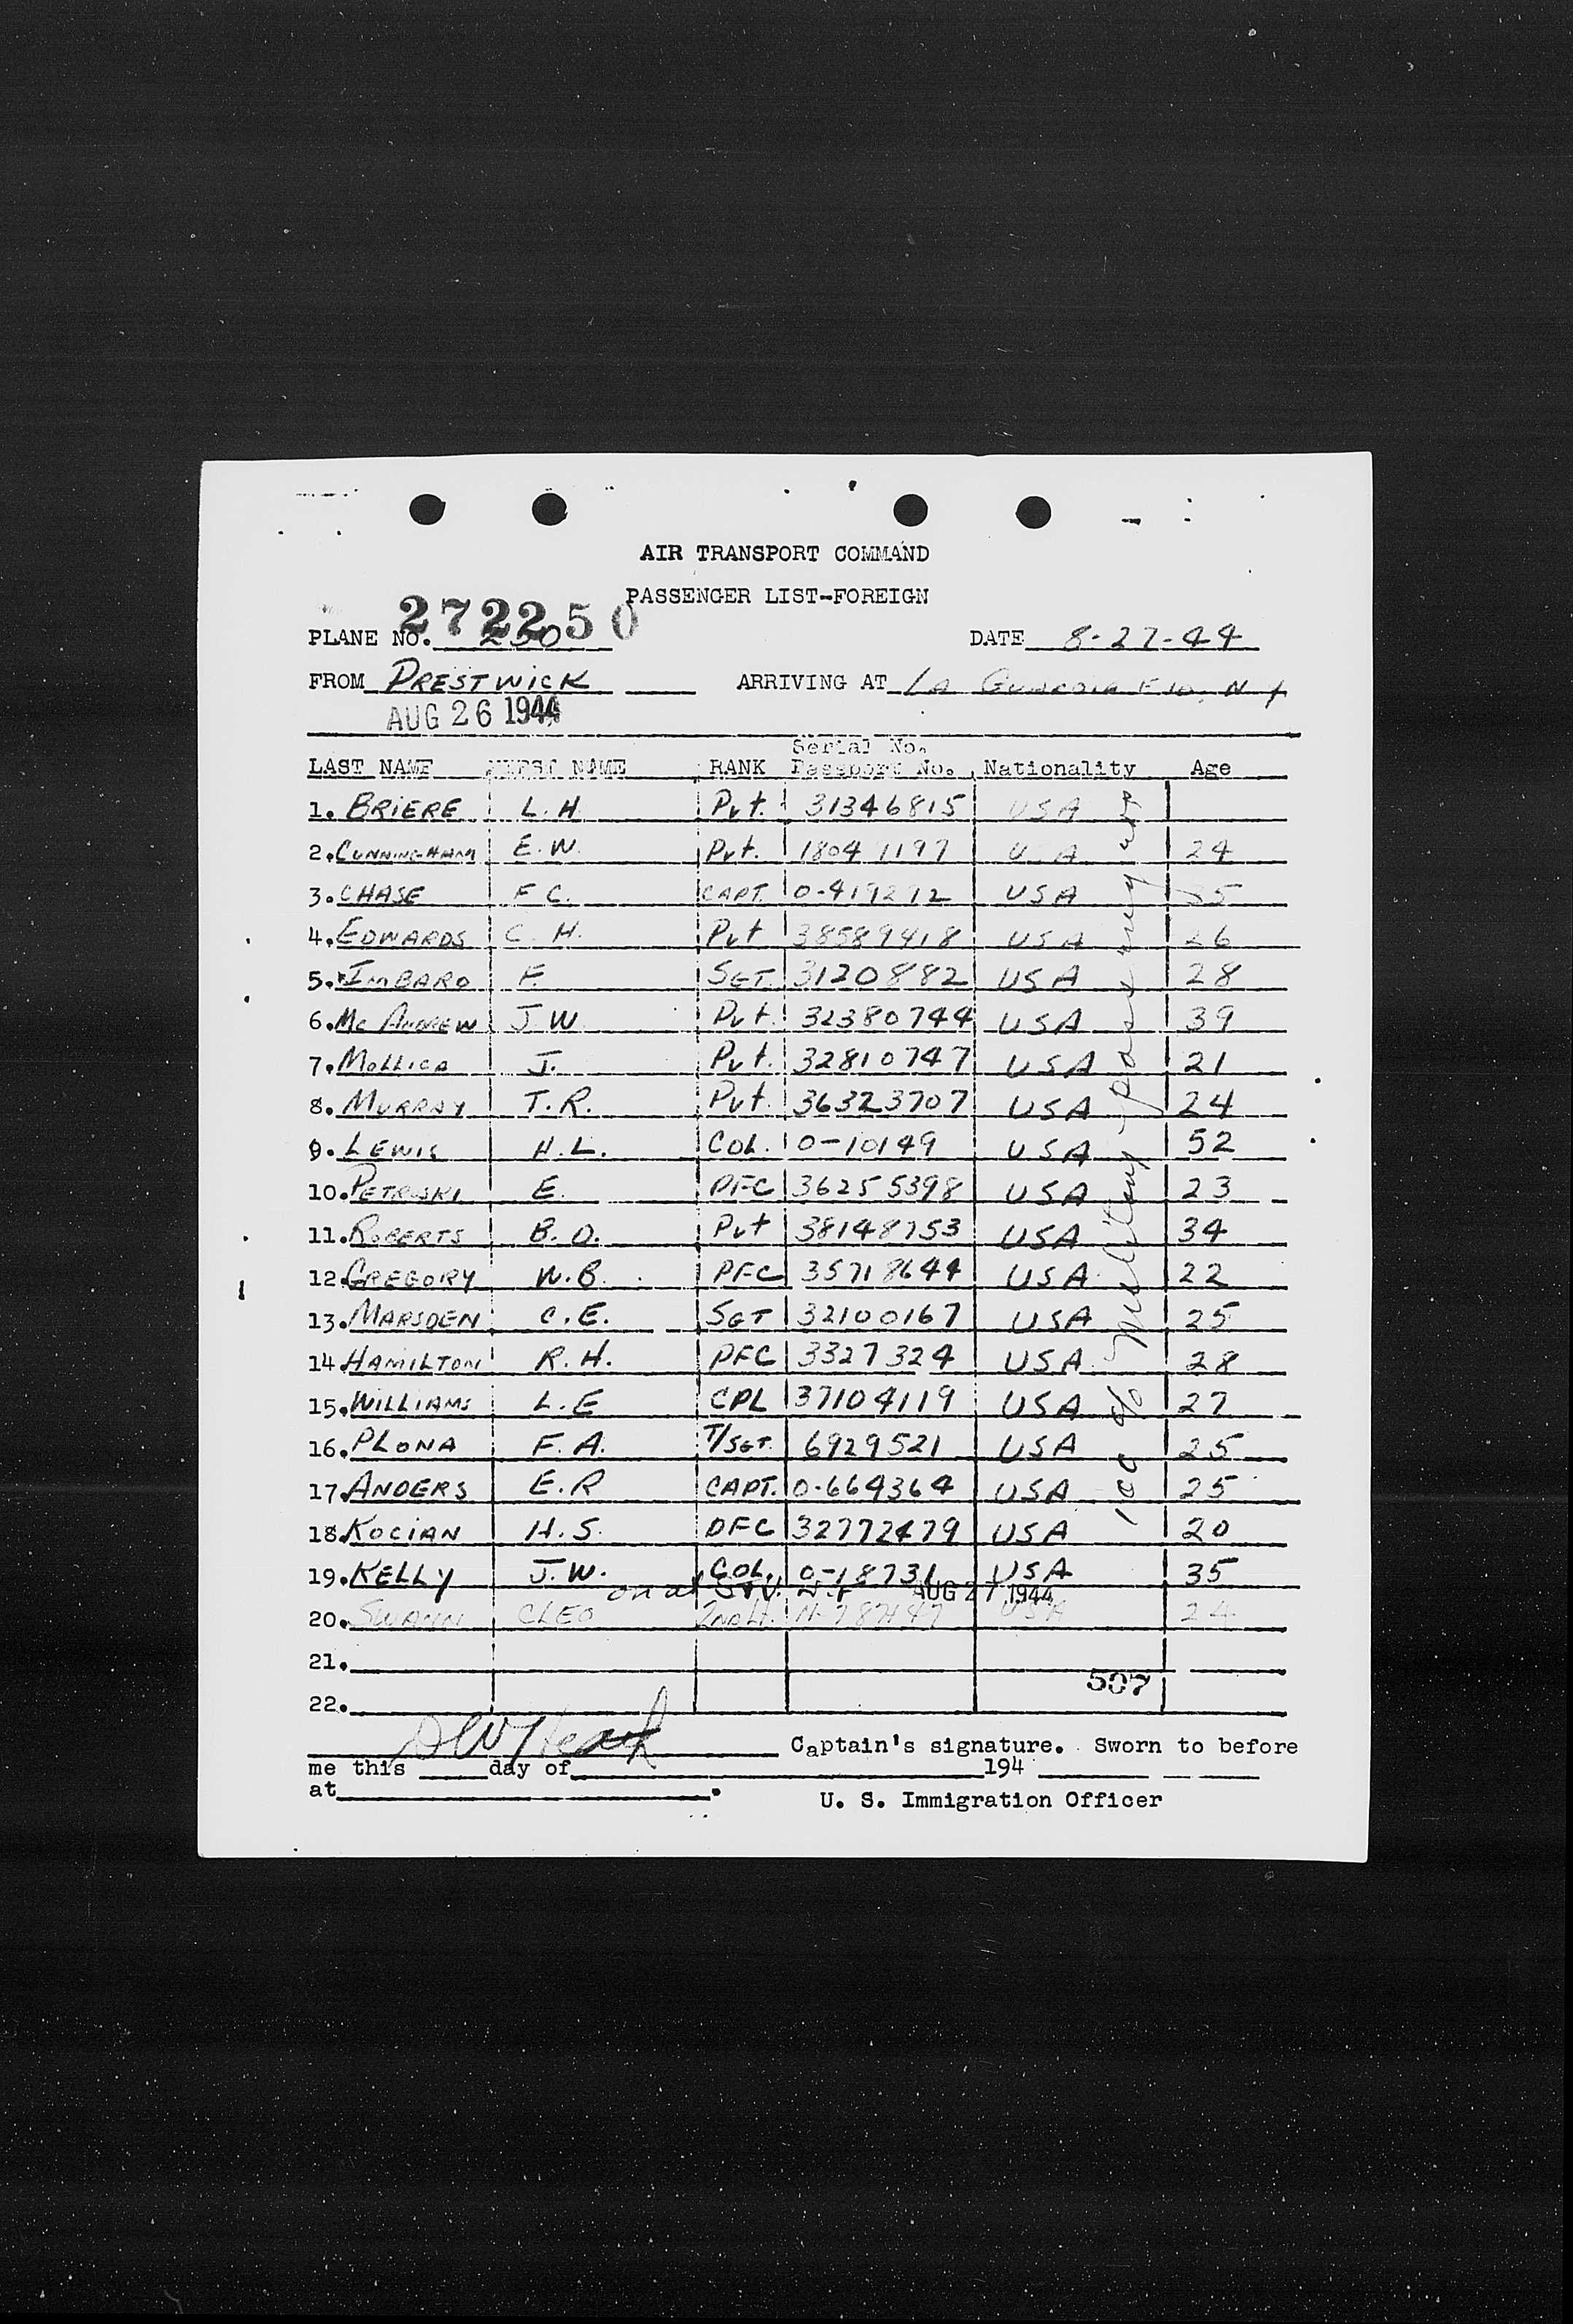 AIR TRANSPORT COMMAND
PASSENGER LIST-FOREIGN
272250
PLANE NO. 250 DATE 8-27-44
FROM PRESTWICK ARRIVING AT La GUARDIA FLD, N Y
AUG 26 1944
Serial No.
LAST NAME FIRST NAME RANK Passport No. Nationality Age
1. BRIERE L. H. Pvt. 31346815 USA
2. CUNNINGHAM E. W. Pvt. 18041197 USA 24
3. CHASE F C. CAPT. 0-419212 USA 35
4. EDWARDS C. H. Pvt 38589418 USA 26
5. IMBARO F. SGT. 3120882 USA 28
6. Mc ANDREW J W. Pvt. 32380744 USA 39
7. MOLLICA J. Pvt. 32810747 USA 21
8. MURRAY T.R. Pvt. 36323707 USA 24
9. LEWIS H.L. COL. 0-10149 USA 52
10. PETROSKI E. PFC 36255398 USA 23
11. ROBERTS B. O. Pvt 38148753 USA 34
12. GREGORY W.B. PFC 35718644 USA 22
13. MARSDEN C.E. SGT 32100167 USA 25
14 HAMILTON R.H. PFC 3327324 USA 28
15. WILLIAMS L.E CPL 37104119 USA 27
16. PLONA F.A. T/SGT. 6929521 USA 25
17. ANDERS E.R CAPT. 0-664364 USA 25
18. KOCIAN H.S. PFC 32772479 USA 20
19. KELLY J.W. COL. 0-18731 USA 35
AUG 27 1944
20. SWANN CLEO 2ND Lt. N-787147 USA 24
21.
507
22.
Captain's signature. Sworn to before
me this day of 194
at .
U. S. Immigration Officer
100 % Military